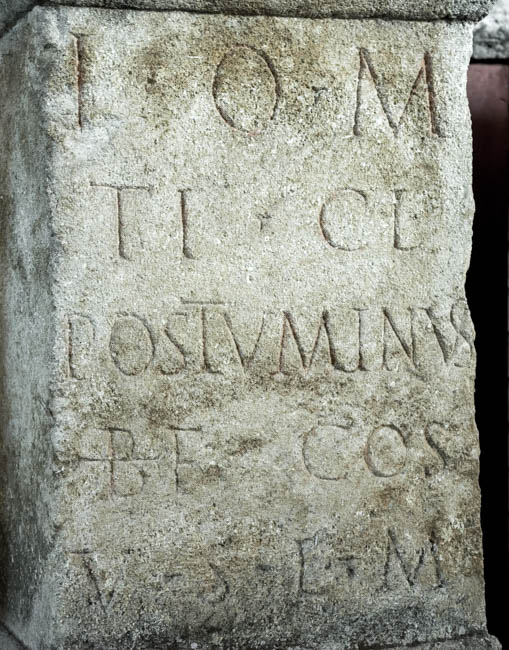 I · O · M
TI · CL
POSTVMINVS
BF COS
V · S · L · M